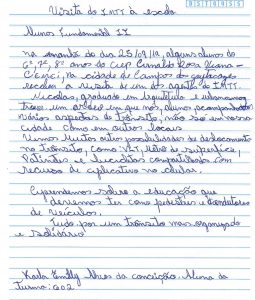 Visita do IMTT à escola
Alunos Fundamental II
Na manhã do dia 25/09/19, alguns alunos do
6º, 7º, 8º anos do Ciep
na cidade de Campos dos Goytacazes
a visita de um dos agentes do IMTT.
Nicolas, graduado em Arquitetura e urbanismo
trouxe um em que nos, alunos,
vários aspectos do trânsito, não só em nossa
cidade como em outros locais.
Vimos muitas outras possibilidades de deslocamento
no trânsito, como VLT, Metrô de superfície,
Patinetes e bicicletas compartilhadas com
recurso de aplicativo no celular.
Aprendemos sobre a educação que
devemos ter como pedestres e condutores
de veículos.
Tudo por um trânsito mais organizado
e solidário!
Karla Emilly Alves da conceição. Aluna da
turma: 602